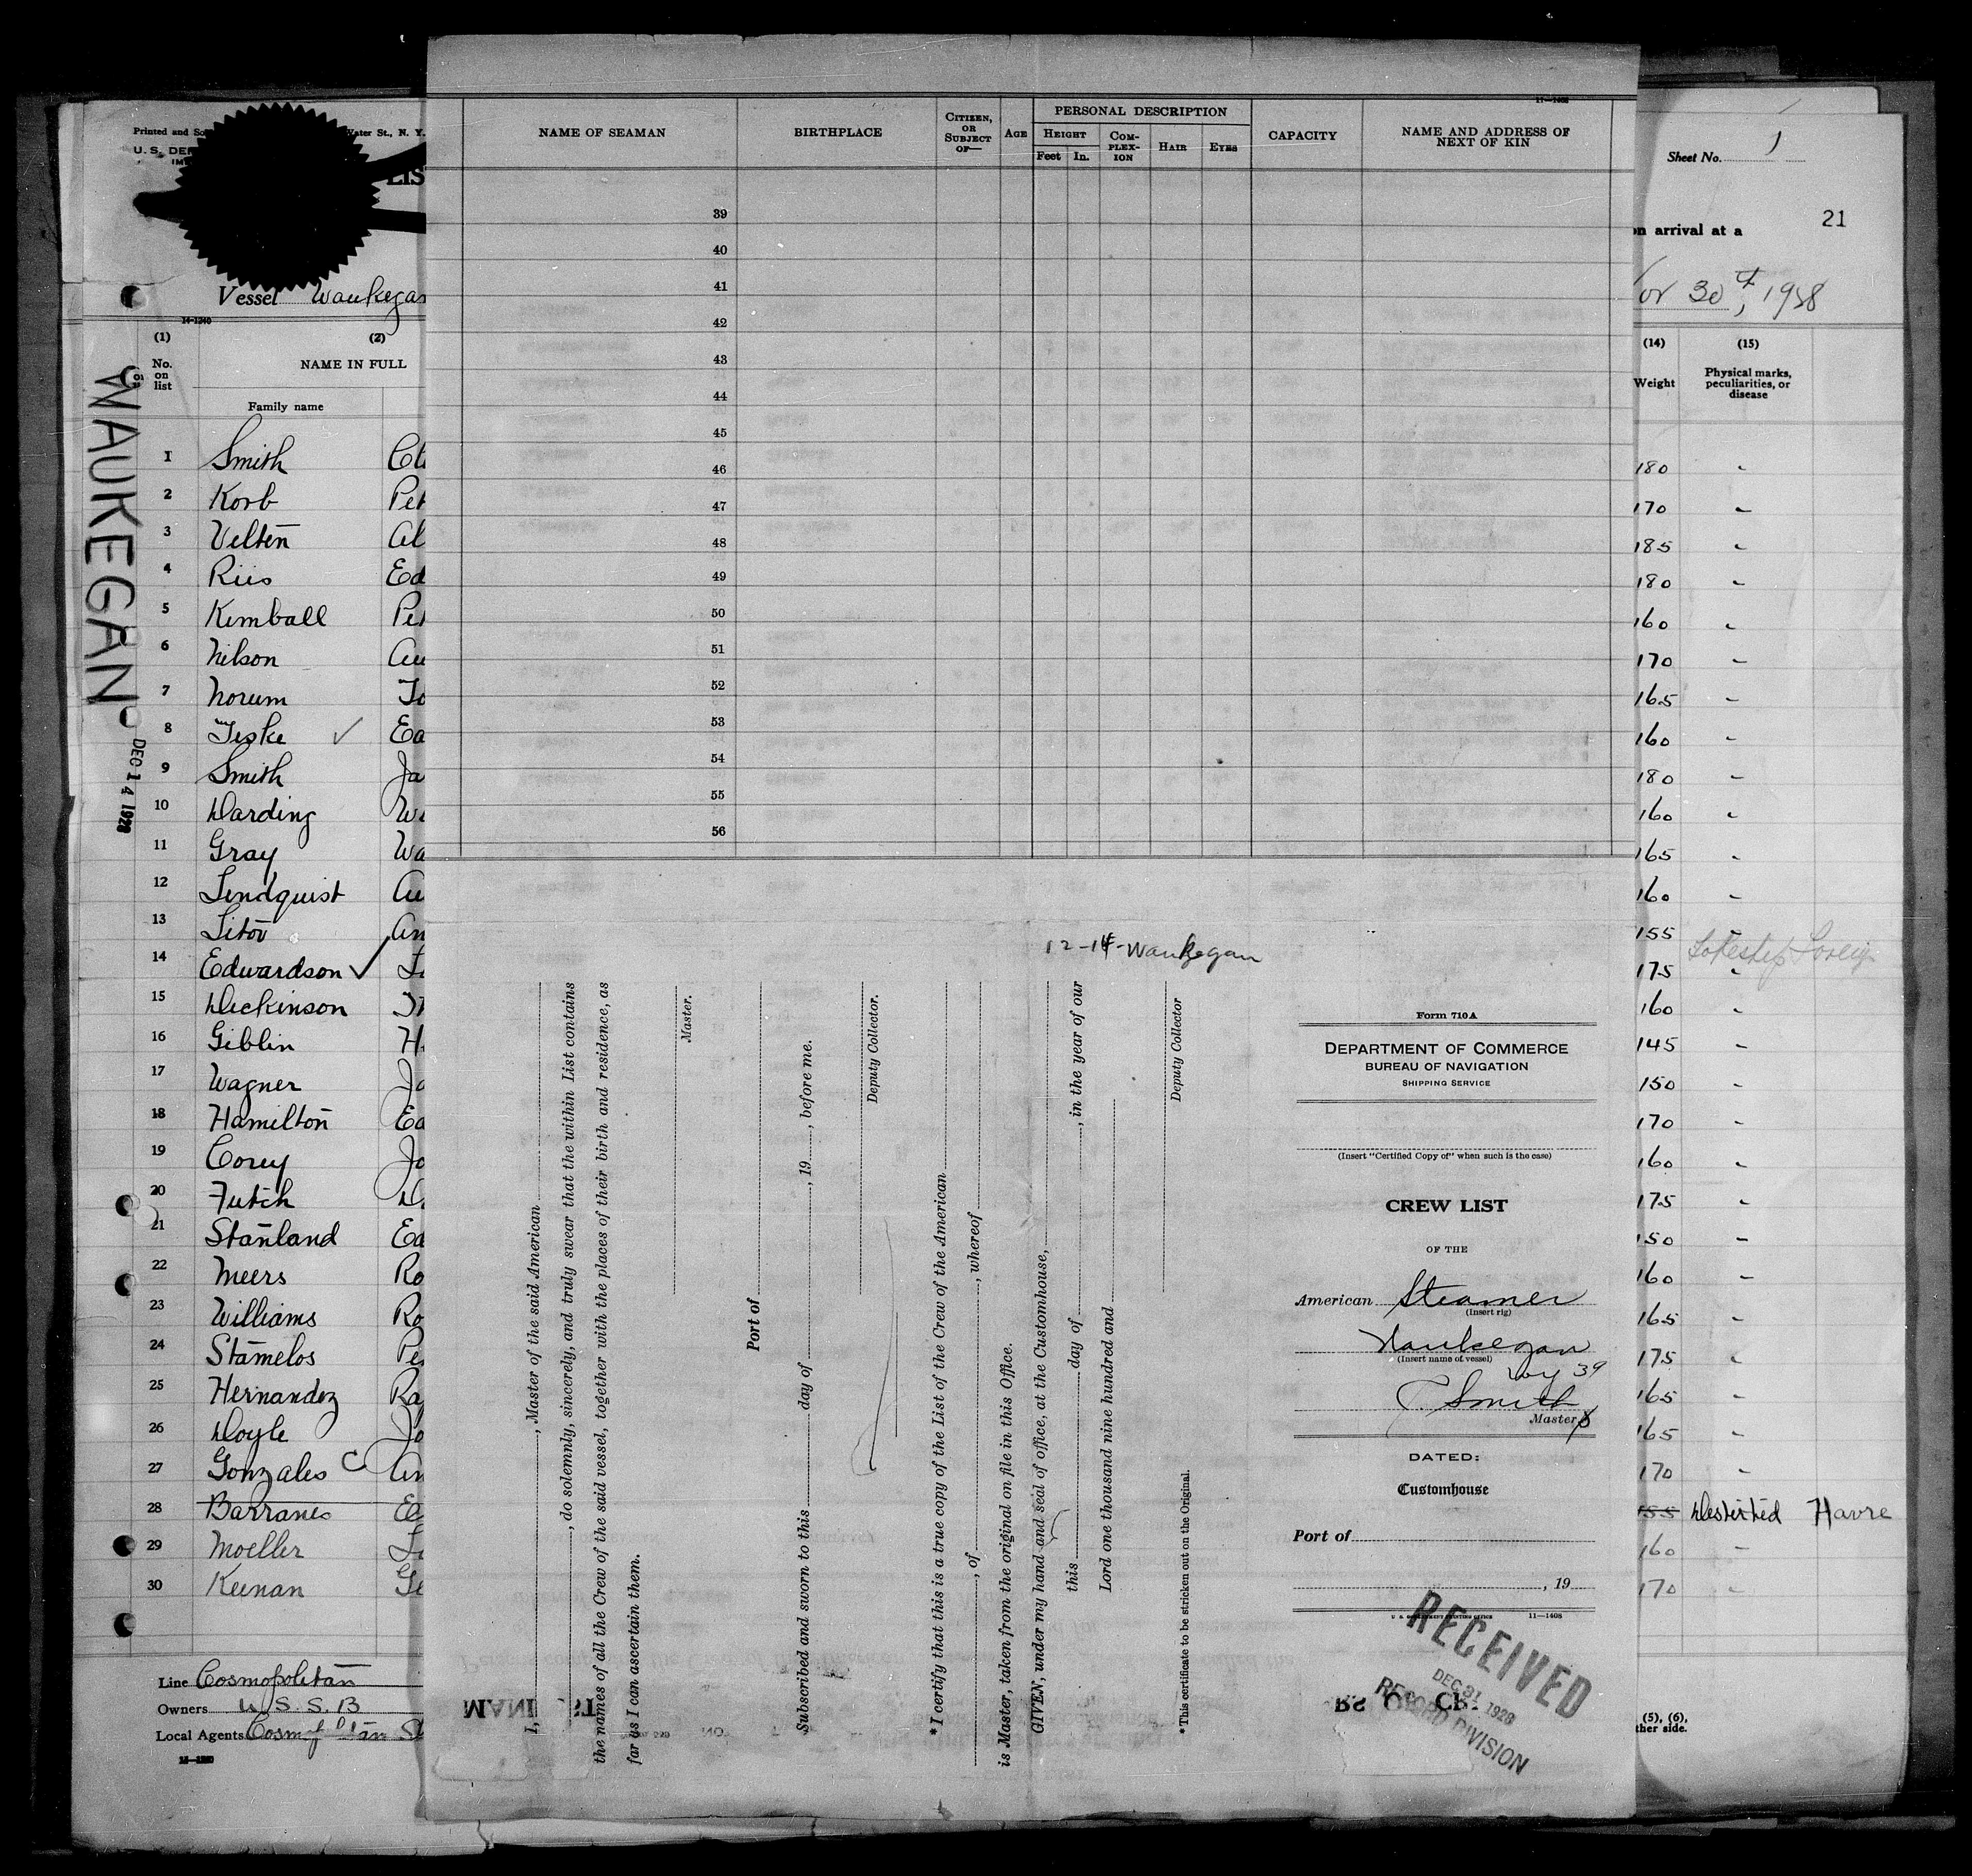 Printed and So
Water St., N. Y.
U. S. DE
LIS
Vessel Waukegan
14-1240
(1)
(2)
No. on list
NAME IN FULL
Family name
WAUKEGAN
DEC 14 1928
1 Smith
2 Korb Pet
3 Velten Al
4 Riis Ed
5 Kimball Pet
6 Nilson Au
7 Norum To
8 Teske ✓ Ea
9 Smith Ja
10 Harding Wi
11 Gray Wa
12 Lindquist Au
13 Titov An
14 Edwardson ✓
15 Dickinson
16 Giblin H
17 Wagner Ja
18 Hamilton Ea
19 Corey Jo
20 Futch
21 Stanland Ed
22 Meers Ro
23 Williams Ro
24 Stamelos Pe
25 Hernandez Ra
26 Doyle Jo
27 Gonzales C An
28 Barranes El
29 Moeller
30 Keenan Ge
Line Cosmopolitan
Owners U.S.S.B
Local Agents Cosmopolitan
NAME OF SEAMAN
BIRTHPLACE
CITIZEN, OR SUBJECT OF—
AGE
PERSONAL DESCRIPTION
HEIGHT
Feet
In.
COMPLEXION
HAIR
EYES
CAPACITY
NAME AND ADDRESS OF NEXT OF KIN
39
40
41
42
43
44
45
46
47
48
49
50
51
52
53
54
55
56
12-14-Waukegan
I, , Master of the said American
, do solemnly, sincerely, and truly swear that the within List contains
the names of all the Crew of the said vessel, together with the places of their birth and residence, as
far as I can ascertain them.
Master.
Port of
Subscribed and sworn to this day of , 19 , before me.
Deputy Collector.
*I certify that this is a true copy of the List of the Crew of the American
, of , whereof
is Master, taken from the original on file in this Office.
GIVEN, under my hand and seal of office, at the Customhouse,
this day of , in the year of our
Lord one thousand nine hundred and
Deputy Collector
*This certificate to be stricken out on the Original.
Form 710A
DEPARTMENT OF COMMERCE
BUREAU OF NAVIGATION
SHIPPING SERVICE
(Insert "Certified Copy of" when such is the case)
CREW LIST
OF THE
American Steamer
(Insert rig)
Waukegan
(Insert name of vessel)
C. Smith
Master
DATED:
Customhouse
Port of
, 19
U. S. GOVERNMENT PRINTING OFFICE 11—1408
RECEIVED
DEC 31 1928
RECORD DIVISION
Sheet No. 1
on arrival at a
21
30th, 1928
(14)
(15)
Weight
Physical marks, peculiarities, or disease
180
170
185
180
160
170
165
160
180
160
165
160
155
175
160
145
150
170
160
175
150
160
165
175
165
165
170
155 Deserted Havre
160
170
(5), (6),
ther side.